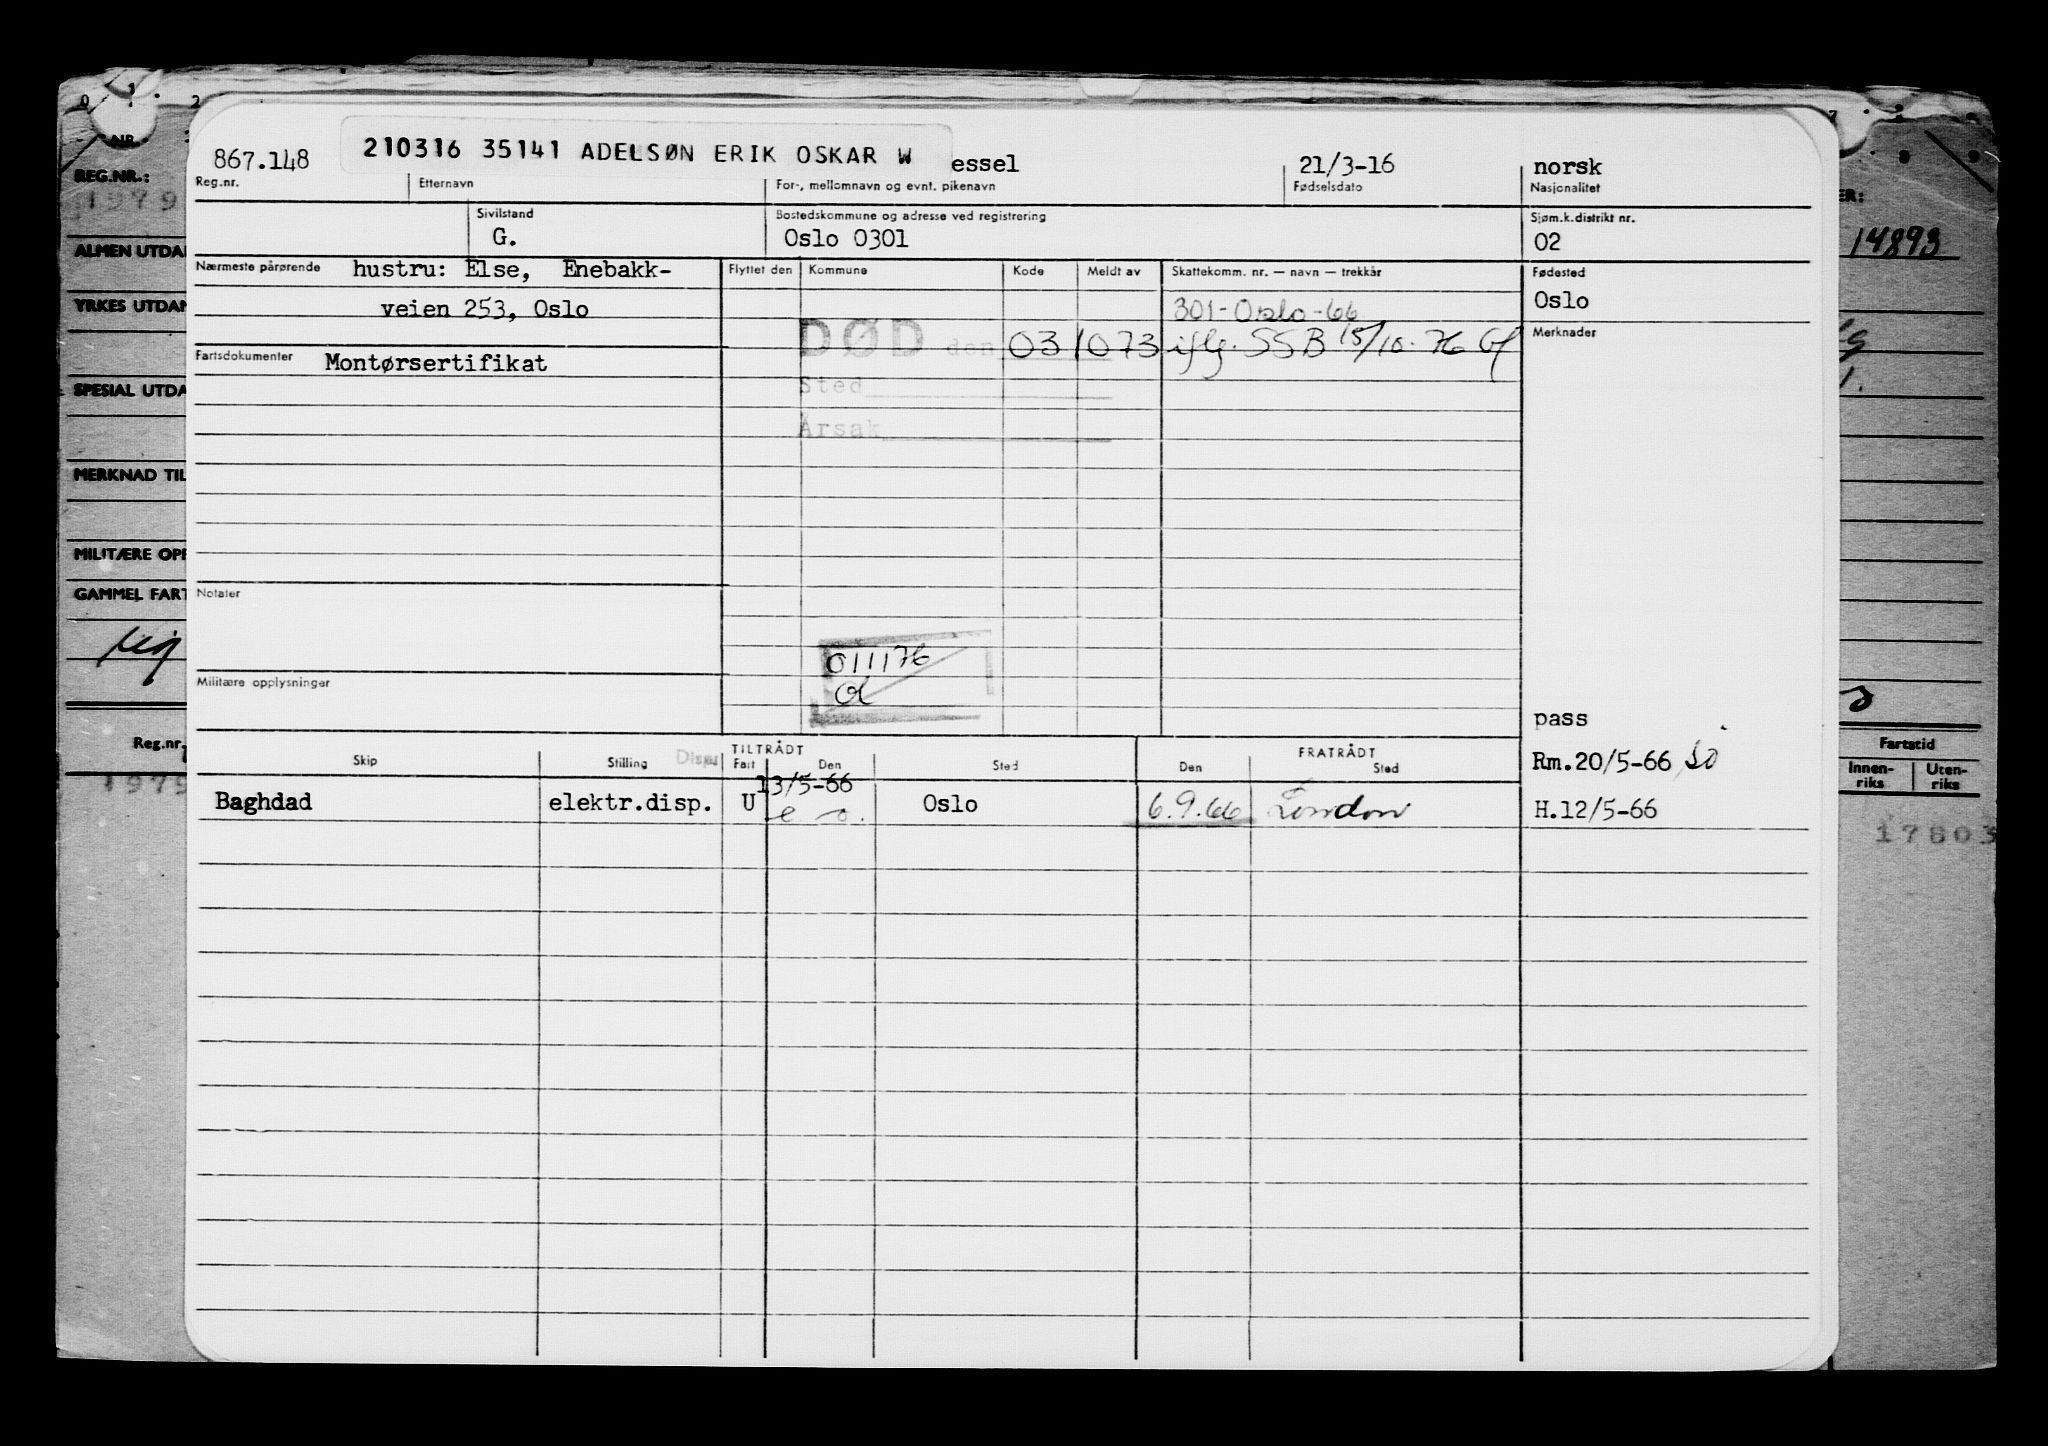 867.148 210316 35141 ADELSØN ERIK OSKAR W essel 21/3-16 norsk
Reg.nr. Etternavn For-, mellomnavn og evnt. pikenavn Fødselsdato Nasjonalitet
Sivilstand Bostedskommune og adresse ved registrering Sjøm.k.distrikt nr.
G. Oslo 0301 02
Nærmeste pårørende hustru: Else, Enebakk-
veien 253, Oslo
Flyttet den Kommune Kode Meldt av Skattekomm. nr. — navn — trekkår Fødested
301-Oslo-66 Oslo
DØD den 031073 iflg. SSB 15/10-76 Gf Merknader
Fartsdokumenter Montørsertifikat
Sted
Årsak
Notater
011176
Militære opplysninger
pass
Rm.20/5-66
TILTRÅDT FRATRÅDT
Skip Stilling Disp Fart Den Sted Den Sted
13/5-66
Baghdad elektr.disp. U Oslo 6.9.66 London H.12/5-66
e o.
0 1 2
REG.NR.:
1979
ALMEN UTDA
YRKES UTDAN
SPESIAL UTDA
MERKNAD TIL
MILITÆRE OPP
GAMMEL FART
Reg.nr.
1979
ER:
14893
Fartstid
Innen-riks Uten-riks
17803